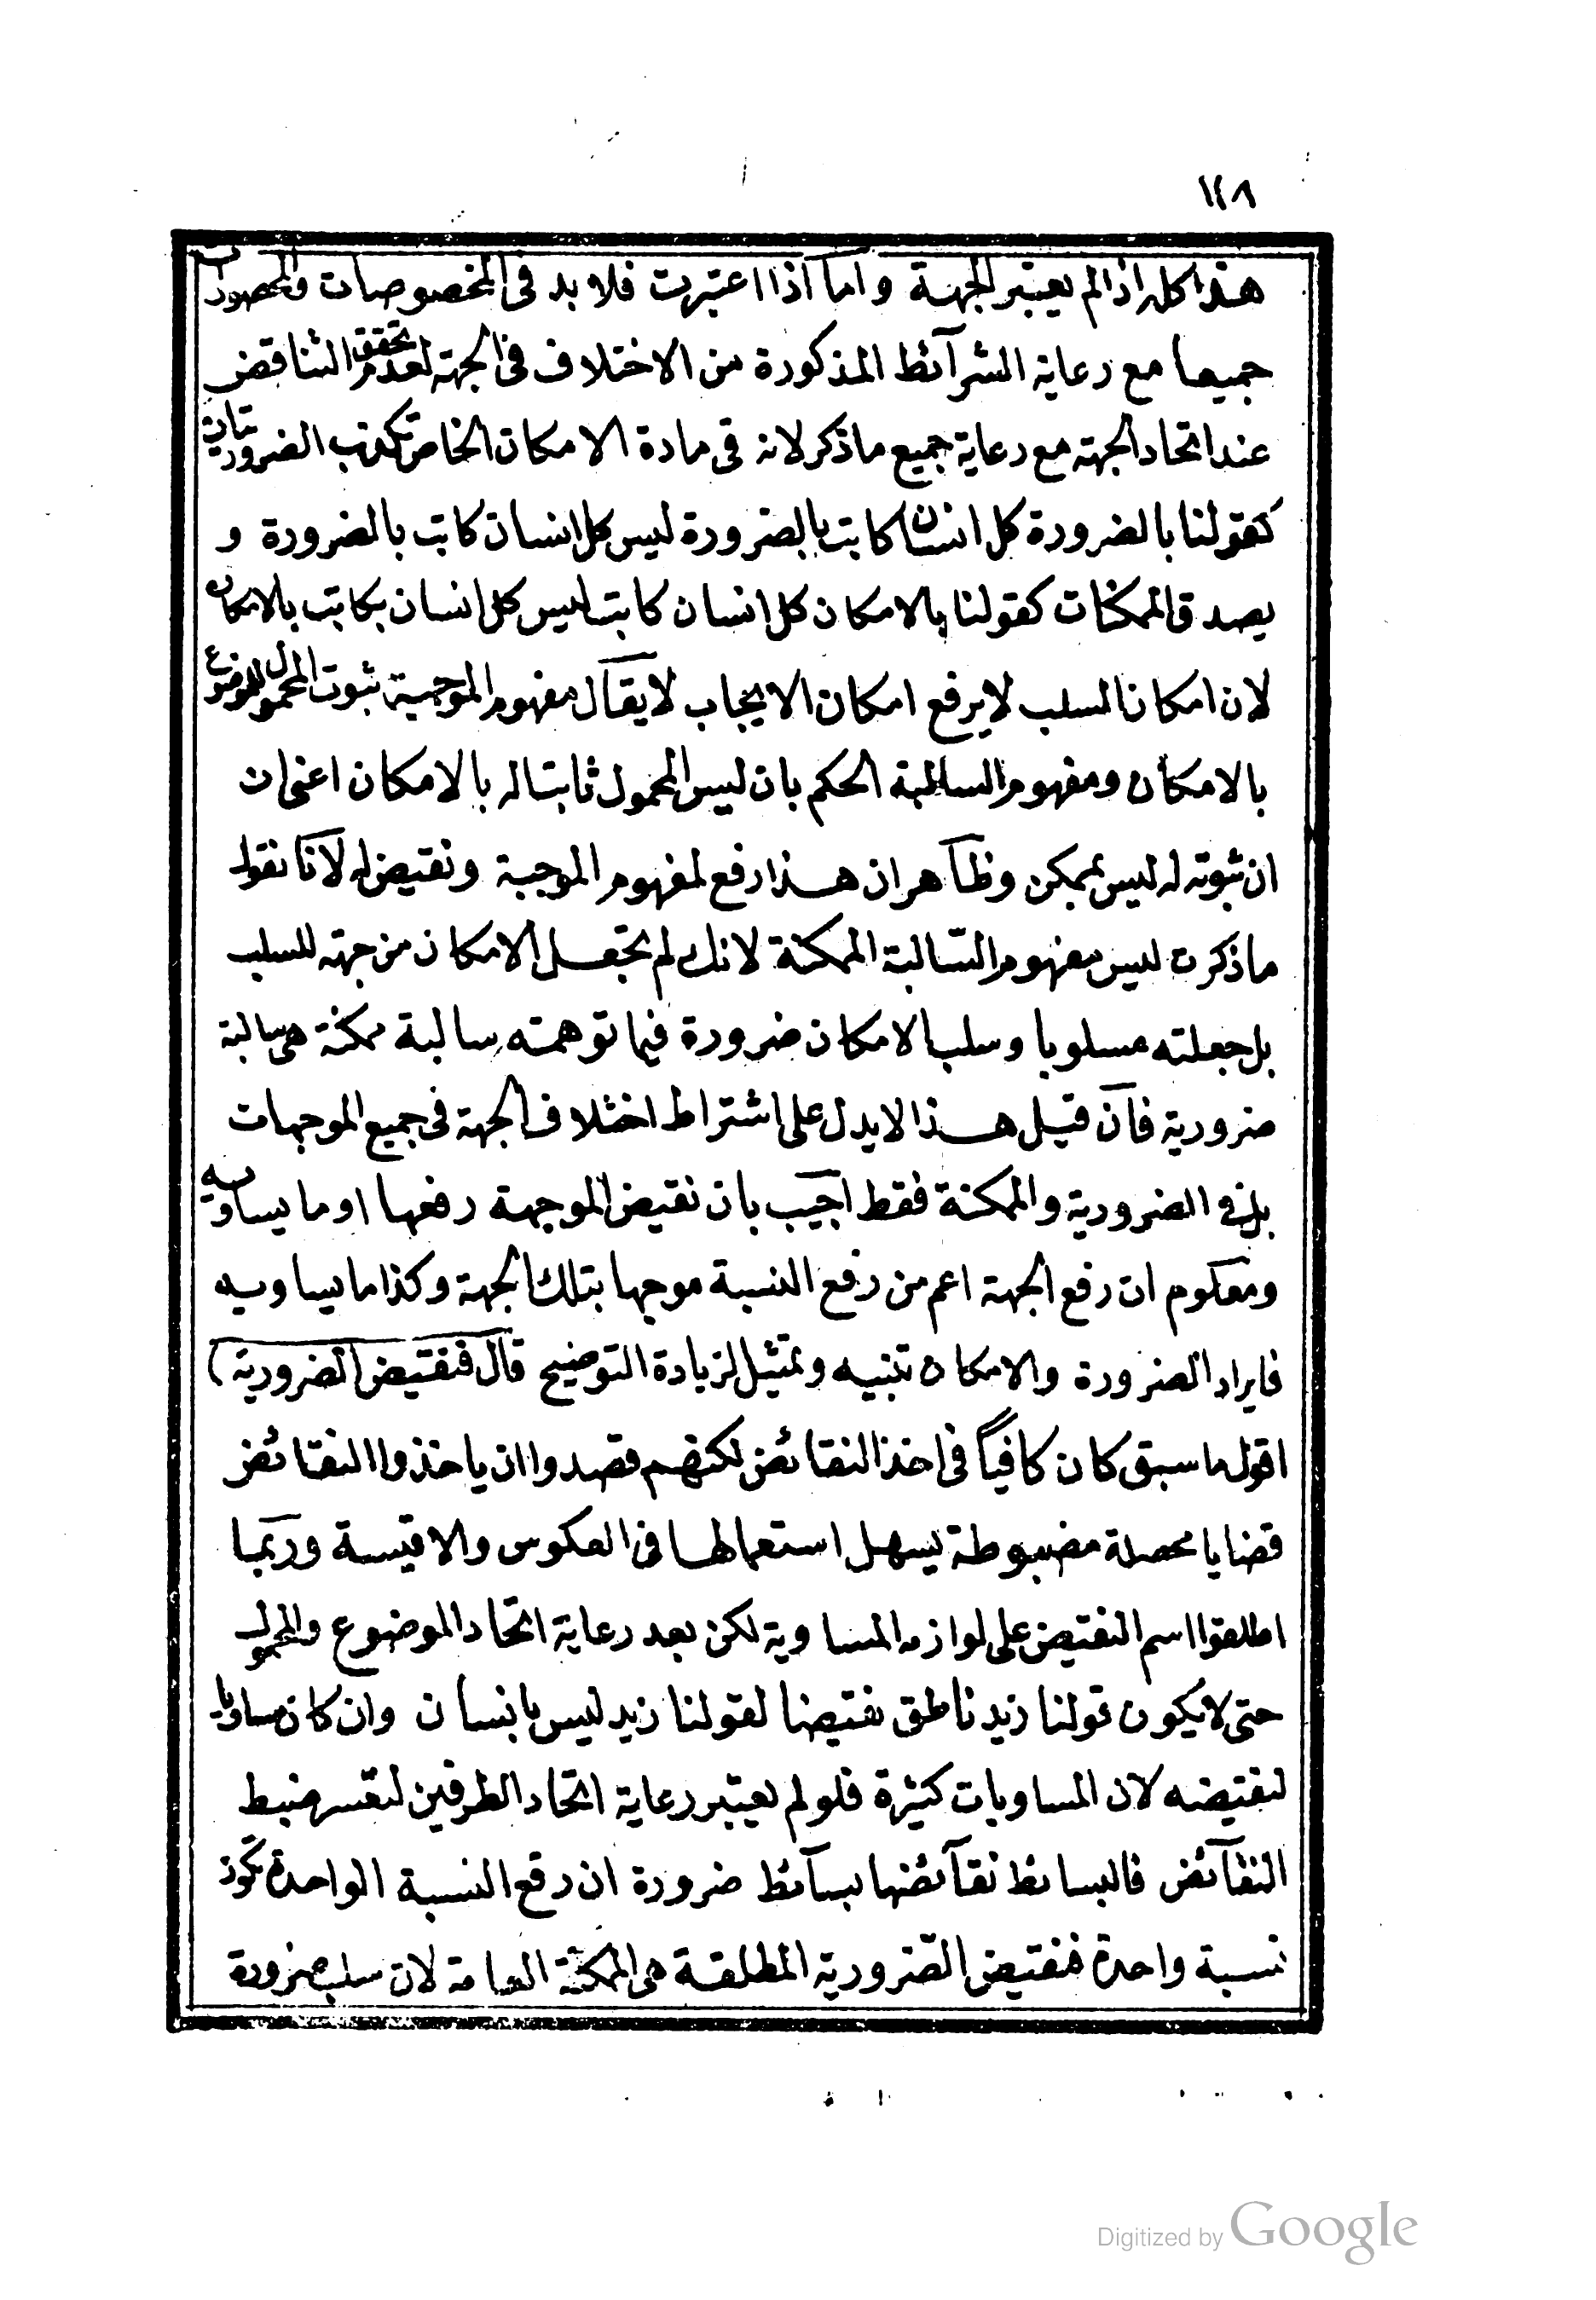 ١٤٨
هذا كله اذا لم يعتبر الجهة واما اذا اعتبرت فلا بد فى المخصوصات والمحصورات
جميعا مع رعاية الشرآئط المذكورة من الاختلاف فى الجهة لعدم تحقق التناقض
عند اتحاد الجهة مع رعاية جميع ما ذكر لانه فى مادة الامكان الخاص تكذب الضروريتان
كقولنا بالضرورة كل انسان كاتب بالضرورة ليس كل انسان كاتب بالضرورة و
يصدق الممكنات كقولنا بالامكان كل انسان كاتب ليس كل انسان بكاتب بالامكان
لان امكان السلب لا يرفع امكان الايجاب لا يقال مفهوم الموجبة ثبوت المحمول للموضوع
بالامكان ومفهوم السالبة الحكم بان ليس المحمول ثابتا له بالامكان اعنى ان
ان ثبوته له ليس بممكن وظآهر ان هذا رفع لمفهوم الموجبة ونقيض له لانا نقول
ما ذكرت ليس مفهوم السّالبة الممكنة لانك لم تجعل الامكان من جهته للسلب
بل جعلته مسلوبا وسلب الامكان ضرورة فيما توهمته سالبة ممكنة هى سالبة
ضرورية فان قيل هذا لا يدل على اشتراط اختلاف الجهة فى جميع الموجهات
بل فى الضرورية والممكنة فقط اجيب بان نقيض الموجهة رفعها او ما يساويه
ومعلوم ان رفع الجهة اعم من رفع النسبة موجها بتلك الجهة وكذا ما يساويه
فايراد الضرورة والامكان تنبيه وتمثيل لزيادة التوضيح قال فنقيض الضرورية )
اقول ما سبق كان كافياً فى اخذ النقائض لكنهم قصدوا ان ياخذوا النقائض
قضايا محصلة مضبوطة يسهل استعمالها فى العكوس والاقيسة وربما
اطلقوا اسم النقيض على لوازمه المساوية لكن بعد رعاية اتحاد الموضوع والمحمول
حتى لا يكون قولنا زيد ناطق نقيضا لقولنا زيد ليس بانسان وان كان مساويا
لنقيضه لان المساويات كثيرة فلو لم يعتبر رعاية اتحاد الطرفين لتعسر ضبط
النقآئض فالبسائط نقآئضها بسآئط ضرورة ان رفع النسبة الواحدة تكون
نسبة واحدة فنقيض الضّرورية المطلقة هى الممكنة العامة لان سلب ضرورة
Digitized by Google